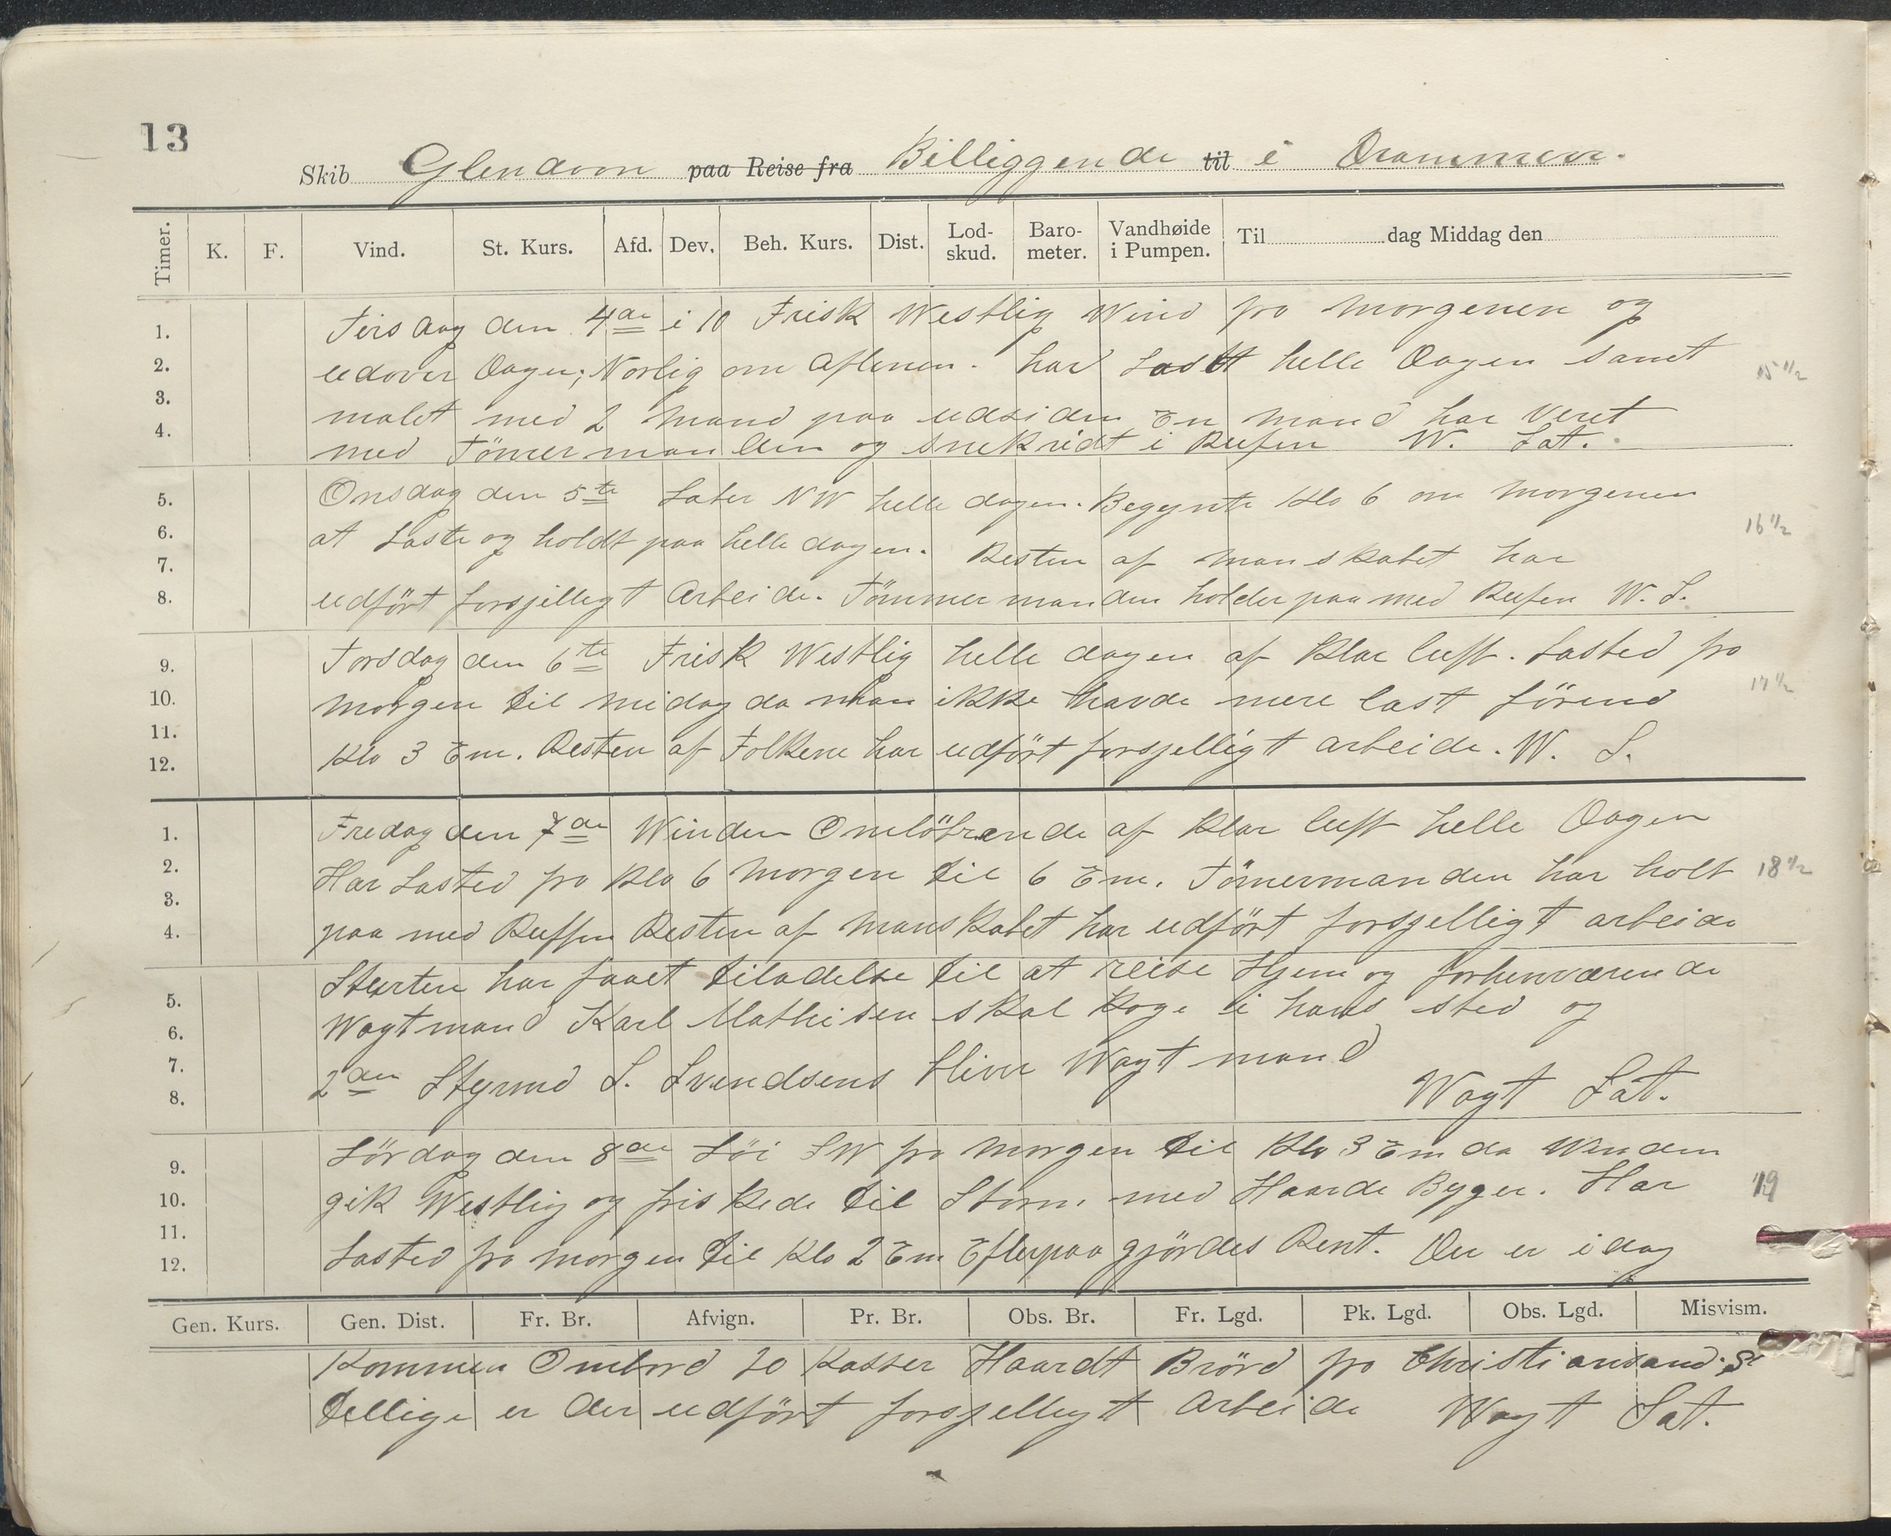 13
Skib Glendoon paa Reise fra Billiggende til i Drammen.
Timer. K. F. Vind. St. Kurs. Afd. Dev. Beh. Kurs. Dist. Lod-skud. Baro-meter. Vandhøide i Pumpen. Til dag Middag den
1. Tirsdag den 4de i 10 Frisk Westlig Wind fra morgenen og
2. udover Dagen; Norlig om aftenen. har Lastt helle Dagen samt 15 1/2
3. malet med 2 mand paa udsiden En mand har Veret
4. med Tömermanden og snekridt i Rufen W. Sat.
5. Onsdag den 5te Laber NW helle dagen. Begynte Klo 6 om morgenen
6. at Laste og holdt paa helle dagen. Resten af manskabet har 16 1/2
7.
8. udfört forsjelligt Arbeide. Tömmermanden holder paa med Rufen W. S.
9. Torsdag den 6te Frisk Westlig helle dagen af Klar luft. Lasted fra
10. morgen til midag da man ikke havde mere last förend 17 1/2
11.
12. Klo 3 Em. Resten af Folkene har udfört forsjelligt arbeide. W. S.
1. Fredag den 7de Winden Omlöbende af klar luft helle Dagen
2. Har Lasted fra Klo 6 morgen til 6 Em. Tömermanden har holt 18 1/2
3.
4. paa med Ruffen Resten af Manskabet har udfört forsjelligt arbeide
5. Stuerten har faaet tiladelse til at reise Hjem og forhenværende
6. Wagtmand Karl Mathisen skal koge i hans sted og
7. 2den Styrmd S. Svendsens bliver Wagtmand
8. Wagt Sat.
9. Lördag den 8de Löi SW fra morgen til Klo 3 Em da Winden
10. gik Westlig og friskede til Storm med Haarde Byger. Har 19
11.
12. Lasted fra morgen til Klo 2 Em Efterpaa gjördes Rent. Der er idag
Gen. Kurs. Gen. Dist. Fr. Br. Afvign. Pr. Br. Obs. Br. Fr. Lgd. Pk. Lgd. Obs. Lgd. Misvism.
Kommen Ombord 20 Kasser Haardt Bröd fra Christiansand. S.
tillige er der udfört forsjelligt Arbeide Wagt Sat.